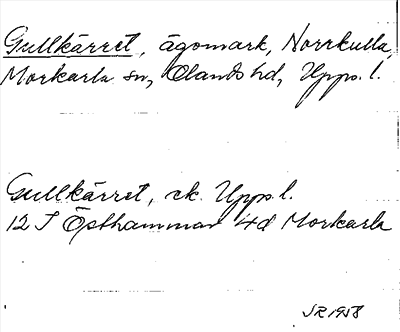 Gullkärret, ägomark, Norrkulla,
Morkarla sn, Olands hd, Upps. l.
Gullkärret, ek. Upps. l.
12 I Östhammar 4d Morkarla
SR 1958